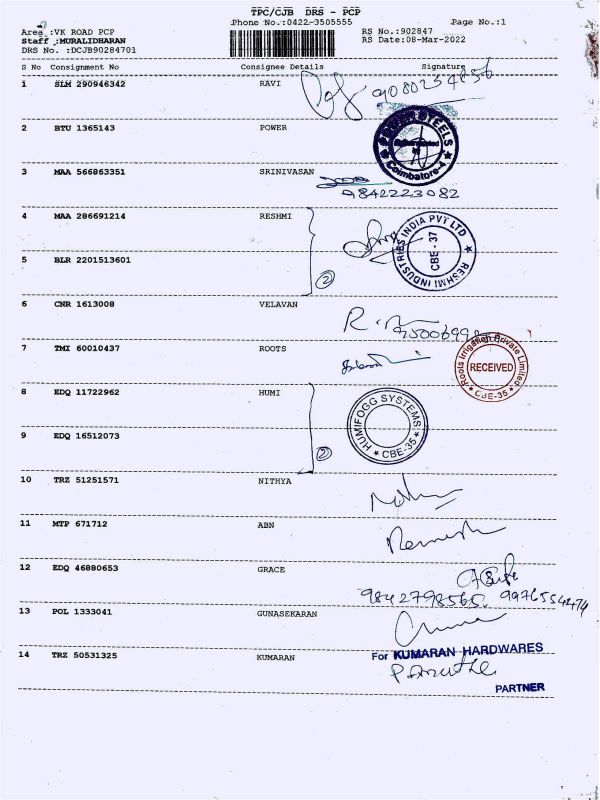 TPC/CJB DRS - PCP
Phone No.:0422-3505555
Page No.:1
Area :VK ROAD PCP
Staff :MURALIDHARAN
DRS No. :DCJB90284701
RS No.:902847
RS Date:08-Mar-2022
S No Consignment No Consignee Details Signature
1 SLM 290946342 RAVI
2 BTU 1365143 POWER
STEELS
Coimbatore-4
3 MAA 566863351 SRINIVASAN
9842223082
4 MAA 286691214 RESHMI
RESHMI INDUSTRIES INDIA PVT LTD
CBE - 37
5 BLR 2201513601
2
6 CNR 1613008 VELAVAN
7 TMI 60010437 ROOTS
Roots Irrigation Private Limited
RECEIVED
CBE-35
8 EDQ 11722962 HUMI
HUMIFOGG SYSTEMS
CBE-35
9 EDQ 16512073
2
10 TRZ 51251571 NITHYA
11 MTP 671712 ABN
Ramesh
12 EDQ 46880653 GRACE
9842798565.
13 POL 1333041 GUNASEKARAN
14 TRZ 50531325 KUMARAN
For KUMARAN HARDWARES
PARTNER